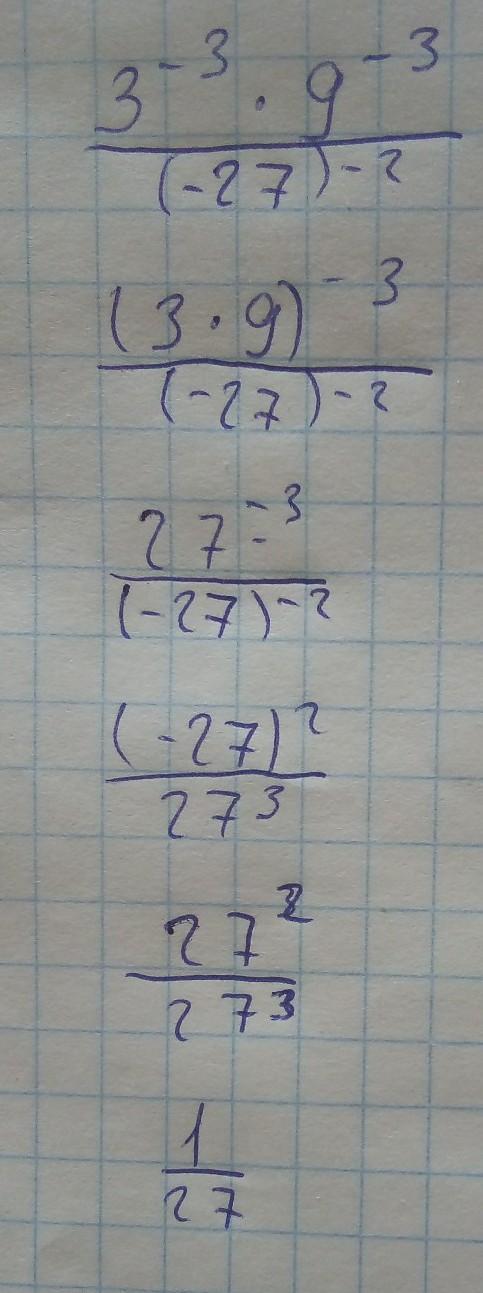 3⁻³ · 9⁻³
(-27)⁻²
(3 · 9)⁻³
(-27)⁻²
27⁻³
(-27)⁻²
(-27)²
27³
27²
27³
1
27